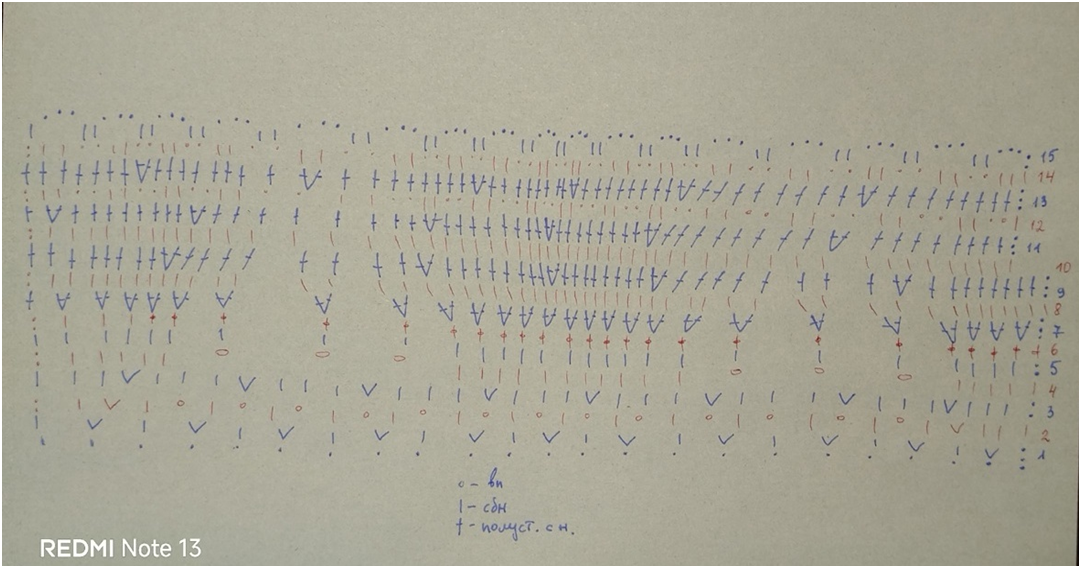 15
14
13
12
11
10
9
8
7
6
5
4
3
2
1
о - вп
I - сбн
† - полуст. с н.
REDMI Note 13